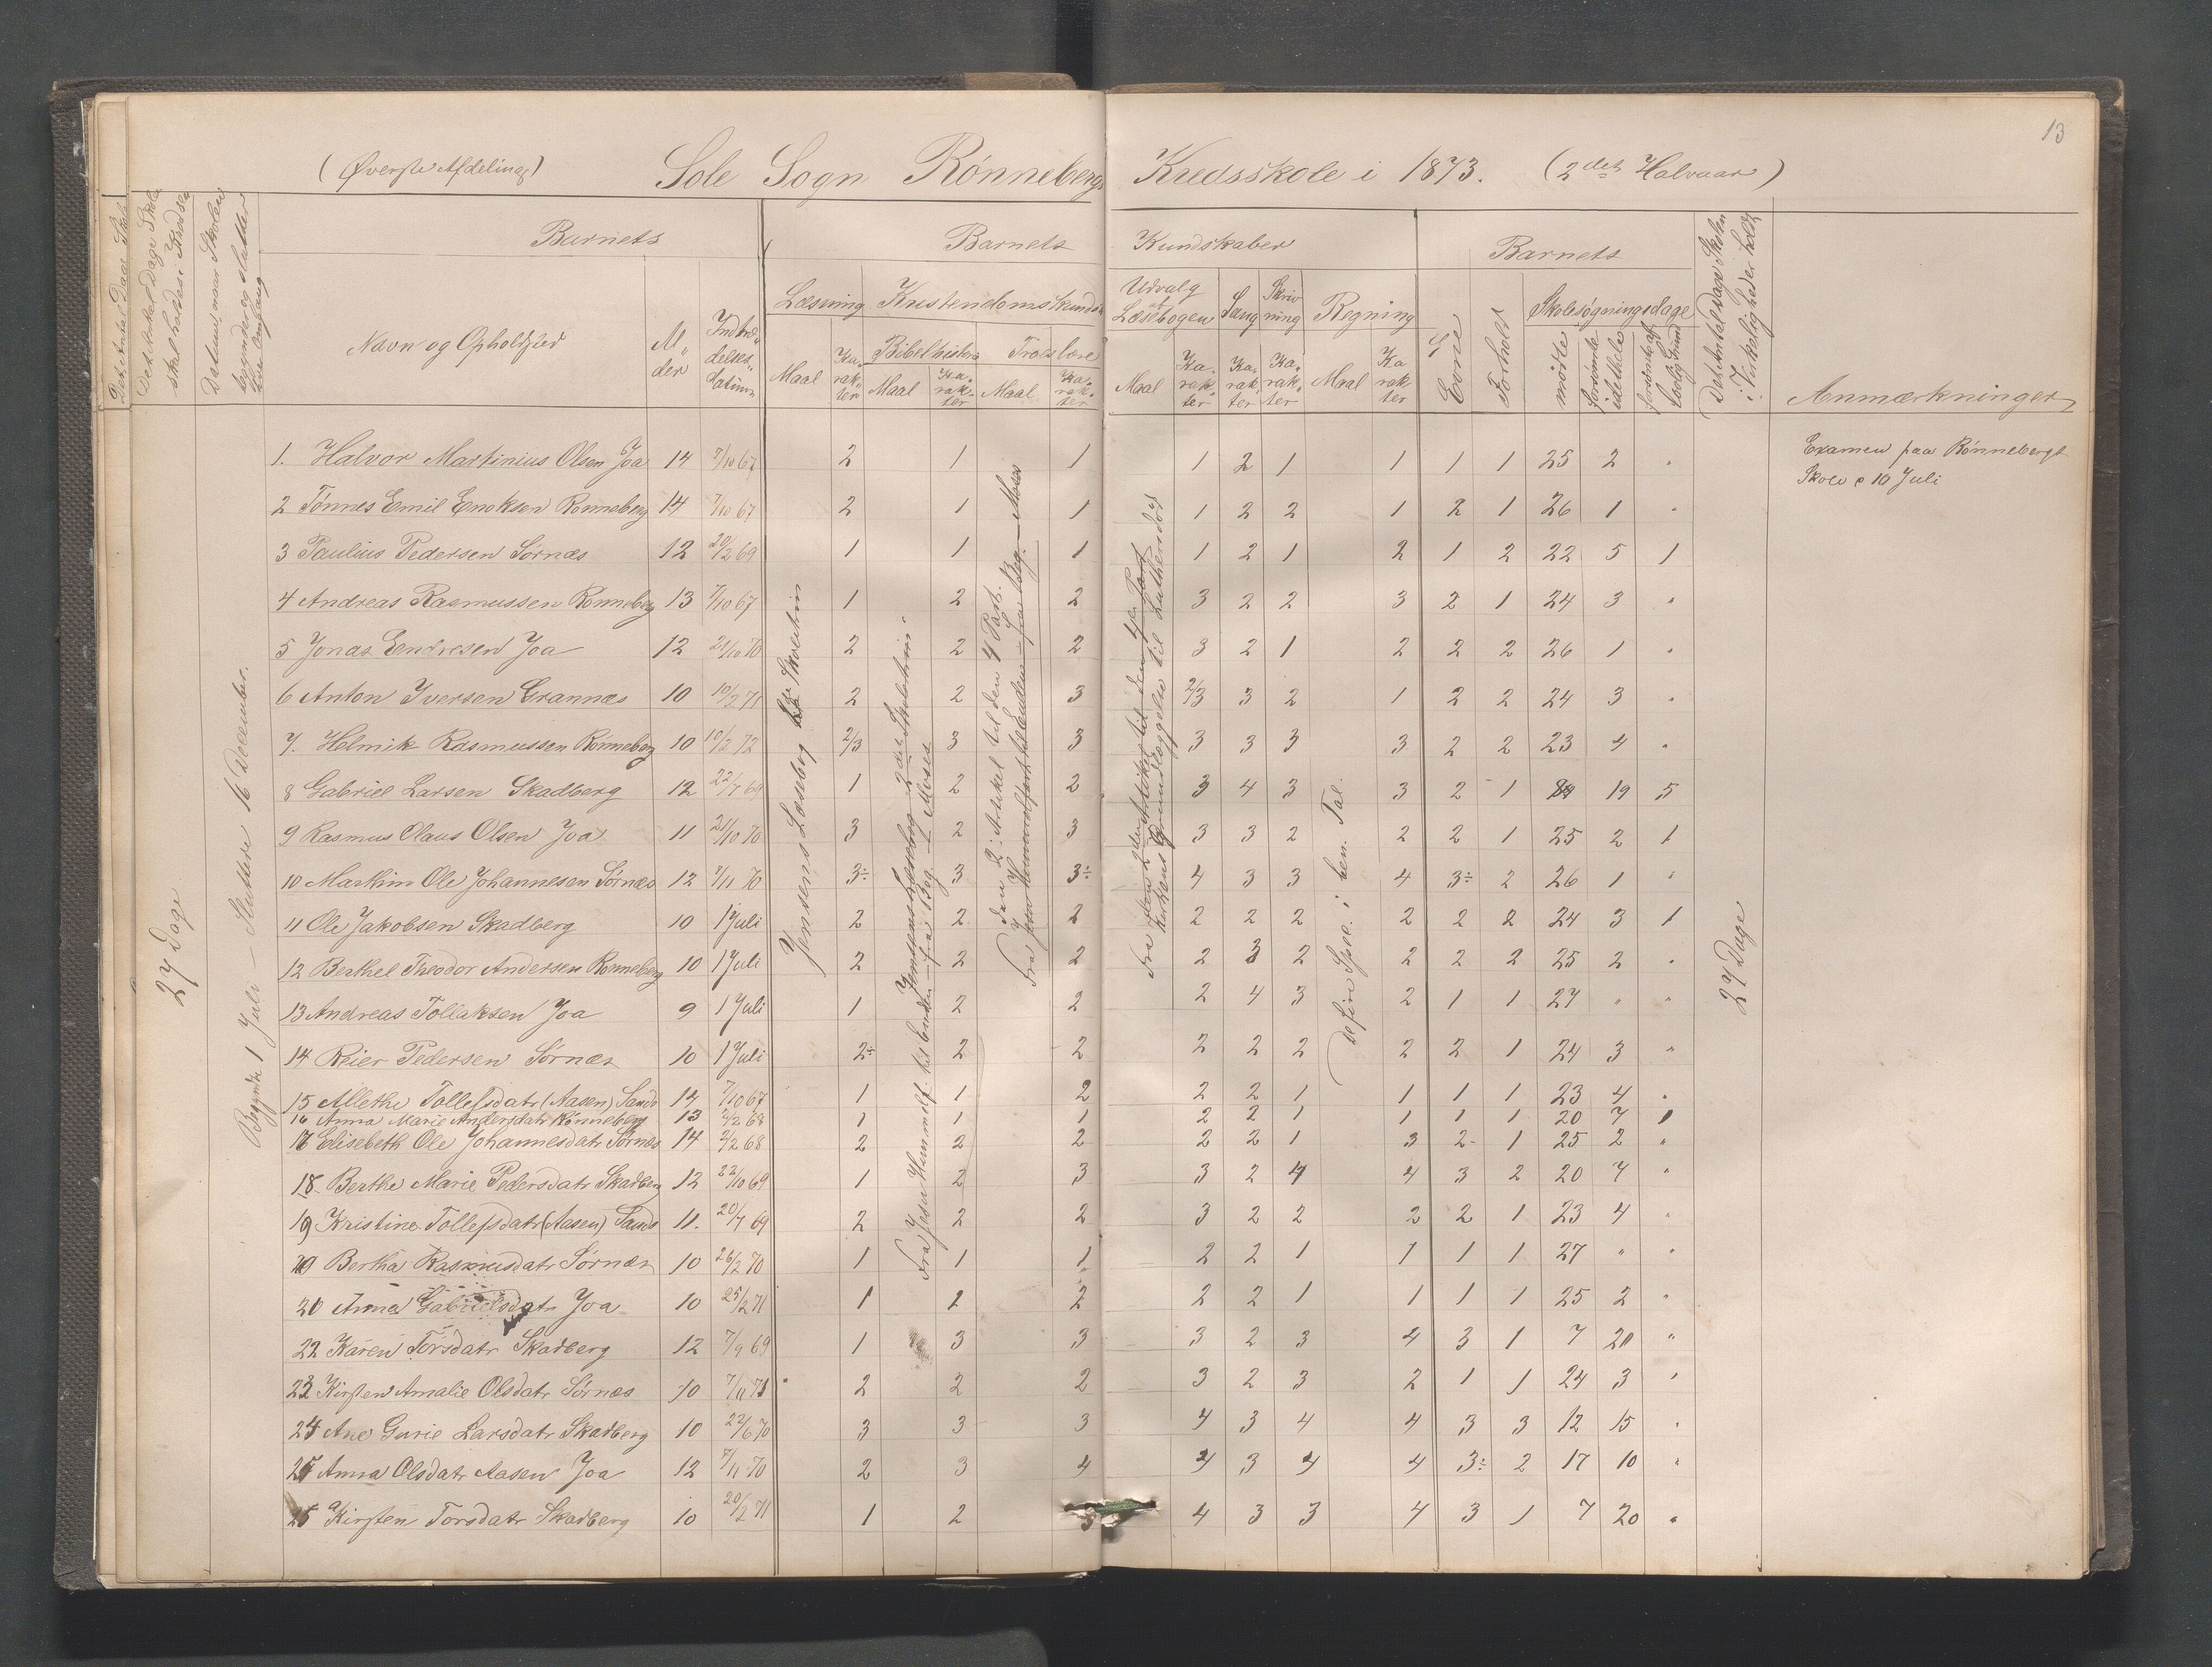 13
(Øverste Afdeling) Sole Sogn Rønnebergs Kredsskole i 1873. (2det Halvaar)
Det Antal Dage Skolen skal holdes i Kredsen
Datum, naar Skolen begynder og slutter sin Omgang
Barnets
Barnets Kundskaber
Barnets
Det Antal Dage Skolen i Virkeligheden holdt
Navn og Opholdsted
Alder
Indtrædelsesdatum
Læsning Kristendomskundsk
Udvalg af Læsebogen Sang Skrivning Regning
Evne Forhold Skolesøgningsdage
Bibelhistorie Troeslære
Maal Karakter Maal Karakter Maal Karakter Maal Karakter Karakter Karakter Maal Karakter
mødte forsømte idethele forsømt af lovlig Grund
Anmærkninger
27 Dage
Begyndte 1 Juli – Sluttede 16 December.
Jensens Læsebog
Fra Jesu Himmelf. til Enden – fra Beg. – Moses
Defin Spec. i ben. Tal.
27 Dage
Examen paa Rønnebergs
Skole d 10 Juli
1. Halvor Martinius Olsen Joa 14 7/10 67 2 1 1 1 2 1 1 1 1 25 2 "
2 Tønnes Emil Enoksen Rønneberg 14 7/10 67 2 1 1 1 2 2 1 2 1 26 1 "
3 Paulius Pedersen Sørnæs 12 20/2 69 1 1 1 1 2 1 2 1 2 22 5 1
4 Andreas Rasmussen Rønneberg 13 7/10 67 1 2 2 3 2 2 3 2 1 24 3 "
5 Jonas Endresen Joa 12 21/10 70 2 2 2 3 2 1 2 2 2 26 1 "
6 Anton Iversen Grannæs 10 10/2 71 2 2 3 2/3 3 2 1 2 2 24 3 "
7. Helmik Rasmussen Rønneberg 10 10/2 72 2/3 3 3 3 3 3 3 2 2 23 4 "
8 Gabriel Larsen Skadberg 12 22/7 69 1 2 2 3 4 3 3 2 1 19 5
9 Rasmus Olaus Olsen Joa 11 21/10 70 3 2 3 3 3 2 2 2 1 25 2 1
10 Marthin Ole Johannesen Sørnæs 12 7/11 70 3÷ 3 3÷ 4 3 3 4 3÷ 2 26 1 "
11 Ole Jakobsen Skadberg 10 1 Juli 2 2 2 2 2 2 2 2 2 24 3 1
12 Berthel Theodor Andersen Rønneberg 10 1 Juli 2 2 2 2 3 2 2 2 2 25 2 "
13 Andreas Tollaksen Joa 9 1 Juli 1 2 2 2 4 3 2 1 1 27 " "
14 Reier Pedersen Sørnæs 10 1 Juli 2÷ 2 2 2 2 2 2 2 1 24 3 "
15 Allethe Tollefsdatr (Aasen) Sande 14 7/10 67 1 1 2 2 2 1 1 1 1 23 4 "
16 Anna Marie Andersdatr Rønneberg 13 2/2 68 1 1 1 2 2 1 1 1 1 20 7 1
17 Elisebeth Ole Johannesdatr Sørnæs 14 2/2 68 2 2 2 2 2 1 3 2 1 25 2 "
18. Berthe Marie Pedersdatr Skadberg 12 22/10 69 1 2 3 3 2 4 4 3 2 20 7 "
19 Kristine Tollefsdatr (Aasen) Sande 11. 20/7 69 2 2 2 3 2 2 2 2 1 23 4 "
20 Bertha Rasmusdatr Sørnæs 10 26/2 70 1 1 1 2 2 1 1 1 1 27 " "
21 Anna Gabrielsdatr Joa 10 25/2 71 1 2 2 2 2 1 1 1 1 25 2 "
22 Karen Torsdatr Skadberg 12 7/9 69 1 3 3 3 2 3 4 3 1 7 20 "
23 Kirsten Amalie Olsdatr Sørnæs 10 7/11 71 2 2 2 3 2 3 2 1 1 24 3 "
24 Ane Gurie Larsdatr Skadberg 10 22/6 70 3 3 3 4 3 4 4 3 3 12 15 "
25 Anna Olsdatr Aasen Joa 12 7/11 70 2 3 4 4 3 4 4 3÷ 2 17 10 "
Kirsten Torsdatr Skadberg 10 20/2 71 1 2 3 4 3 3 4 3 1 7 20 "